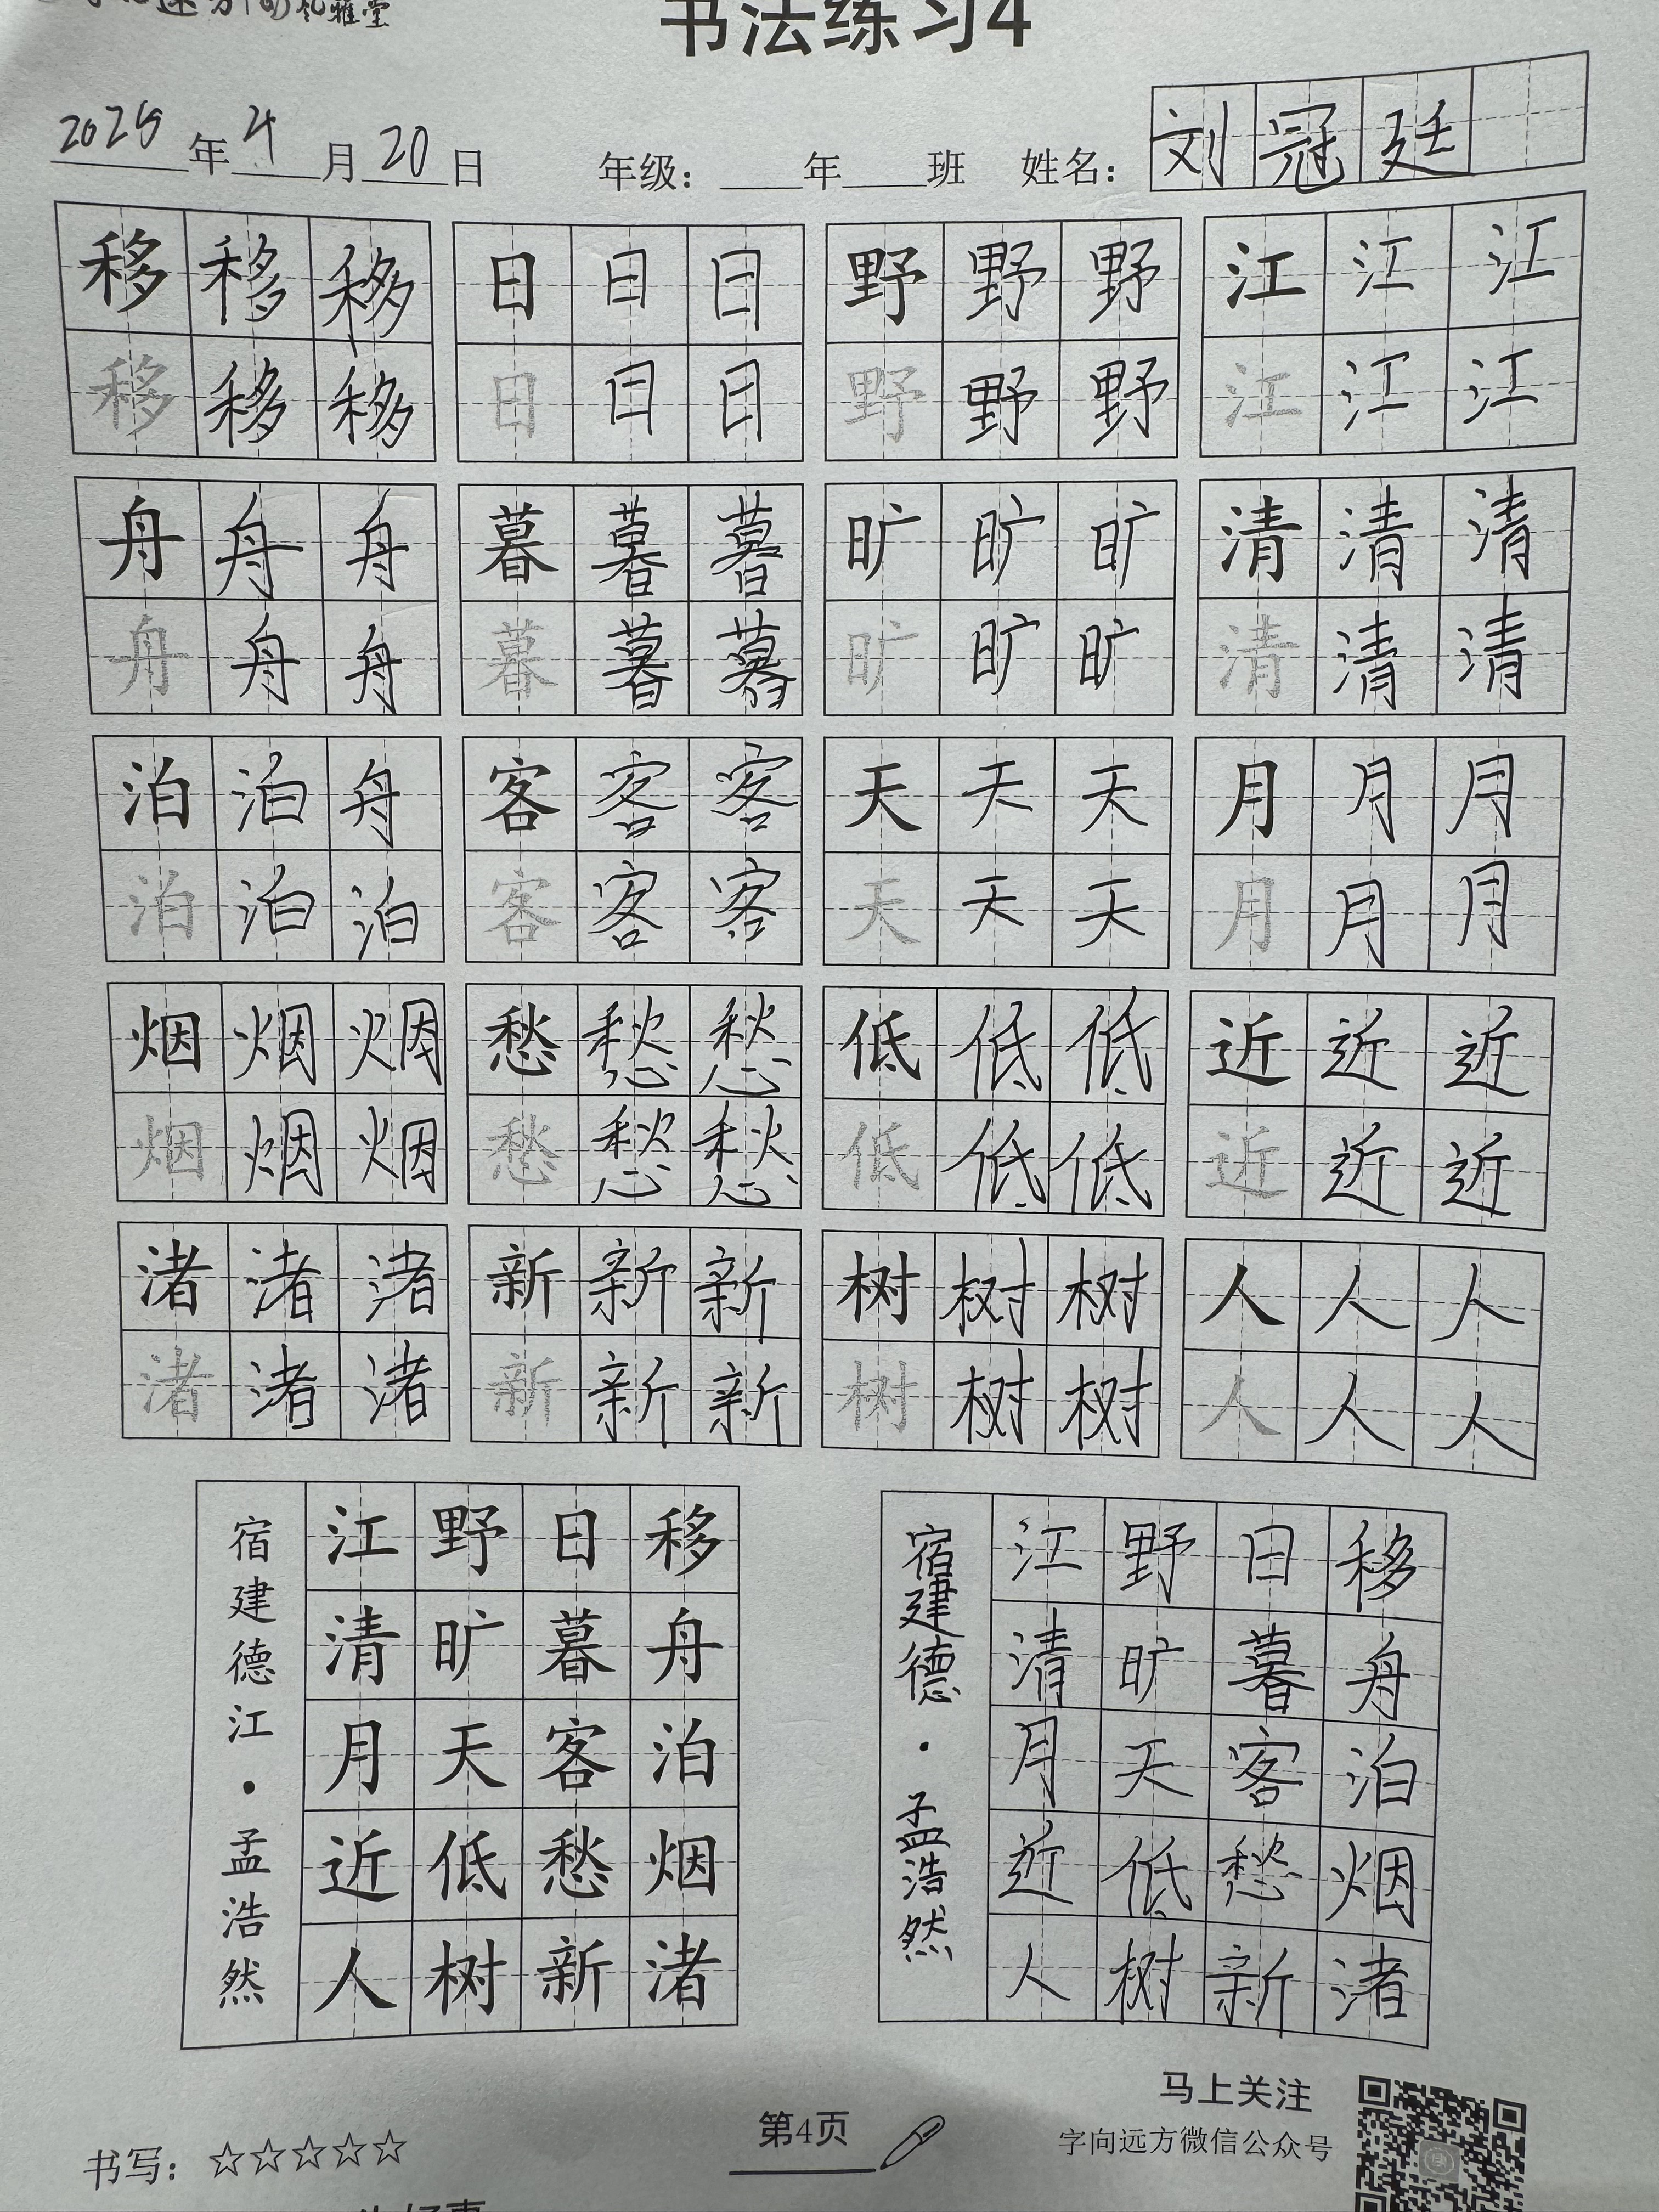 雅堂
书法练习4
2025年4月20日 年级：____年____班 姓名：刘冠廷
移移移 日日日 野野野 江江江
移移移 日日日 野野野 江江江
舟舟舟 暮暮暮 旷旷旷 清清清
舟舟舟 暮暮暮 旷旷旷 清清清
泊泊舟 客客客 天天天 月月月
泊泊泊 客客客 天天天 月月月
烟烟烟 愁愁愁 低低低 近近近
烟烟烟 愁愁愁 低低低 近近近
渚渚渚 新新新 树树树 人人人
渚渚渚 新新新 树树树 人人人
移舟泊烟渚
日暮客愁新
野旷天低树
江清月近人
宿建德江·孟浩然
移舟泊烟渚
日暮客愁新
野旷天低树
江清月近人
宿建德·孟浩然
马上关注
字向远方微信公众号
第4页
书写：☆☆☆☆☆